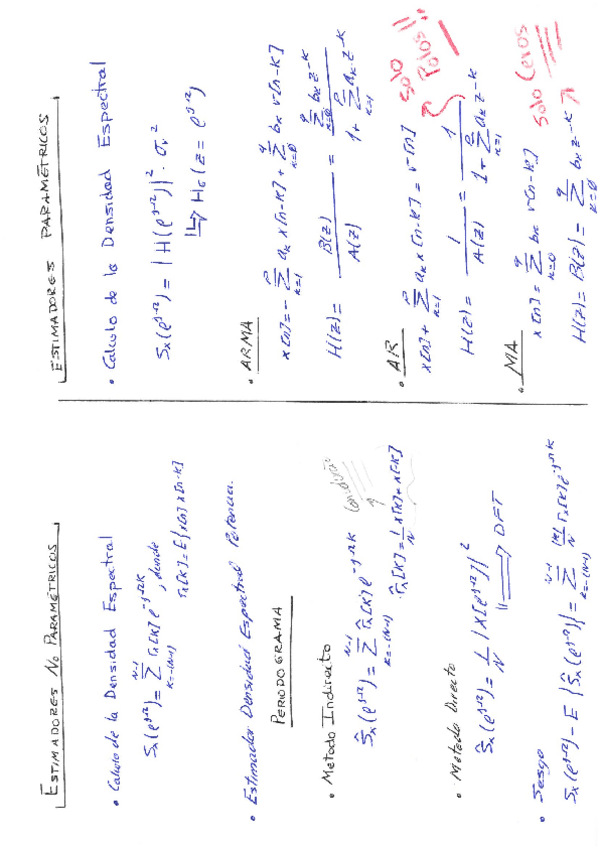 ESTIMADORES NO PARAMÉTRICOS
• Calculo de la Densidad Espectral
Sx(e^jΩ) = Σ_{k=-(N-1)}^{N-1} rx[k] e^-jΩk, donde
rx[k] = E{x[n] x[n-k]}
• Estimador Densidad Espectral Potencia.
PERIODOGRAMA
• Metodo Indirecto
Ŝx(e^jΩ) = Σ_{k=-(N-1)}^{N-1} r̂x[k] e^-jΩk
r̂x[k] = 1/N x[k] * x[-k]
• Metodo Directo
Ŝx(e^jΩ) = 1/N |X[e^jΩ]|²
⇒ DFT
• Sesgo
Sx(e^jΩ) - E{Ŝx(e^jΩ)} = Σ_{k=-(N-1)}^{N-1} |k|/N rx[k] e^-jΩk
ESTIMADORES PARAMÉTRICOS
• Calculo de la Densidad Espectral
Sx(e^jΩ) = |H(e^jΩ)|² · σv²
⇒ H(z = e^jΩ)
• ARMA
x[n] = -Σ_{k=1}^{p} ak x[n-k] + Σ_{k=0}^{q} bk v[n-k]
H(z) = B(z)/A(z) = Σ_{k=0}^{q} bk z^-k / 1 + Σ_{k=1}^{p} ak z^-k
• AR
Solo Polos!!
x[n] + Σ_{k=1}^{p} ak x[n-k] = v[n]
H(z) = 1/A(z) = 1 / 1 + Σ_{k=1}^{p} ak z^-k
• MA
Solo Ceros
x[n] = Σ_{k=0}^{q} bk v[n-k]
H(z) = B(z) = Σ_{k=0}^{q} bk z^-k